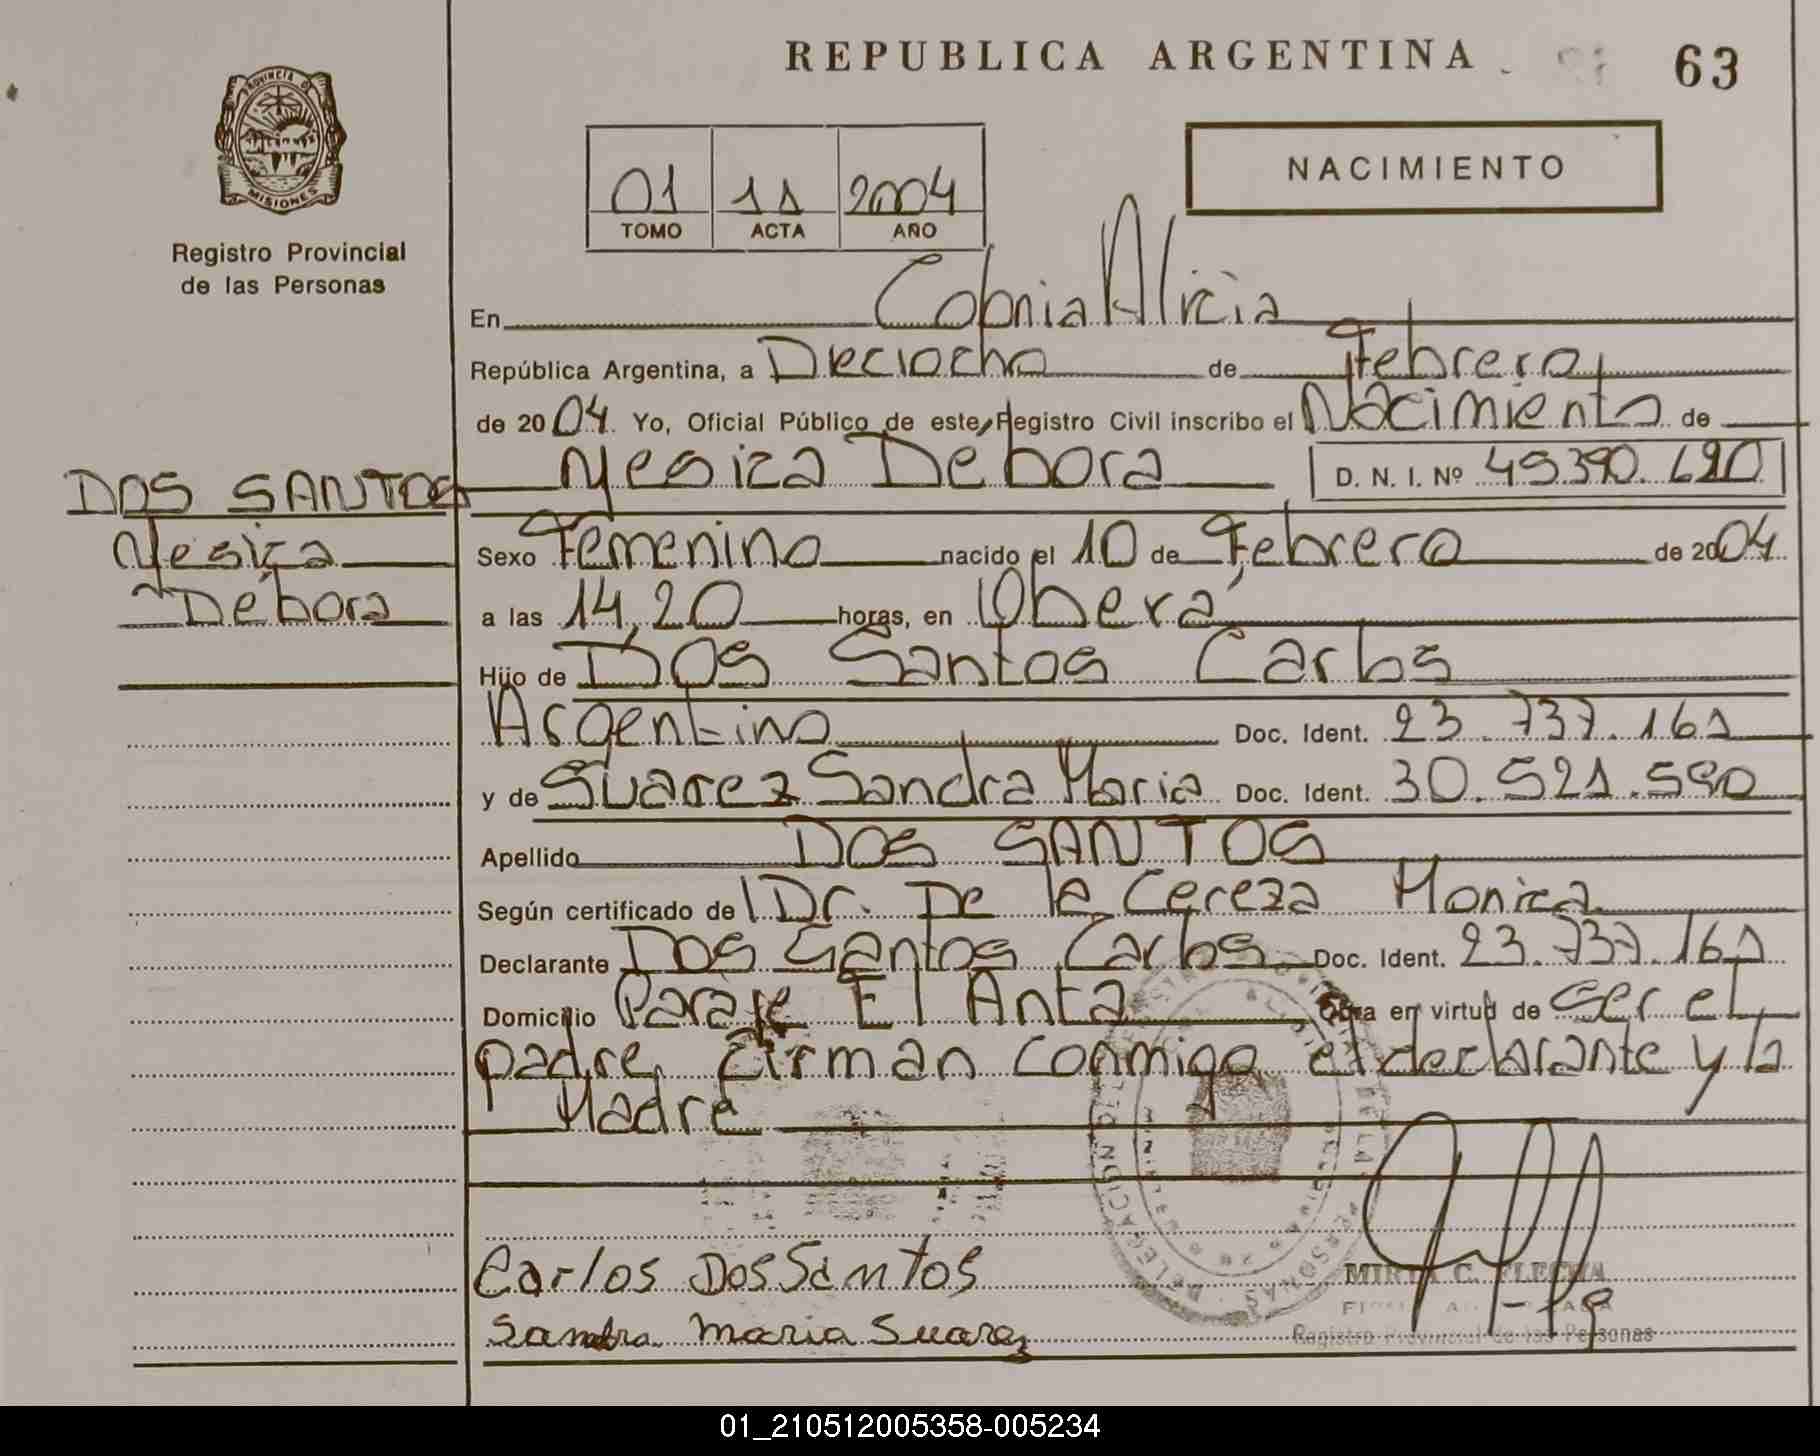 REPUBLICA ARGENTINA
63
PROVINCIA DE
MISIONES
Registro Provincial
de las Personas
01 11 2004
TOMO ACTA AÑO
NACIMIENTO
En Colonia Alicia
República Argentina, a Dieciocho de Febrero
de 2004. Yo, Oficial Público de este Registro Civil inscribo el Nacimiento de
Yesica Debora D. N. I. Nº 45.390.620
DOS SANTOS
Yesica
Debora
Sexo Femenino nacido el 10 de Febrero de 2004
a las 14,20 horas, en Oberá
Hijo de Dos Santos Carlos
Argentino Doc. Ident. 23.737.161
y de Suarez Sandra Maria Doc. Ident. 30.521.590
Apellido DOS SANTOS
Según certificado de Dr. De la Cereza Monica
Declarante Dos Santos Carlos Doc. Ident. 23.737.161
Domicilio Paraje El Anta Obra en virtud de ser el
padre, firman conmigo el declarante y la
Madre
Carlos Dos Santos
Sandra Maria Suarez
MIRTA C. FLECHA
Registro Provincial de las Personas
01_210512005358-005234